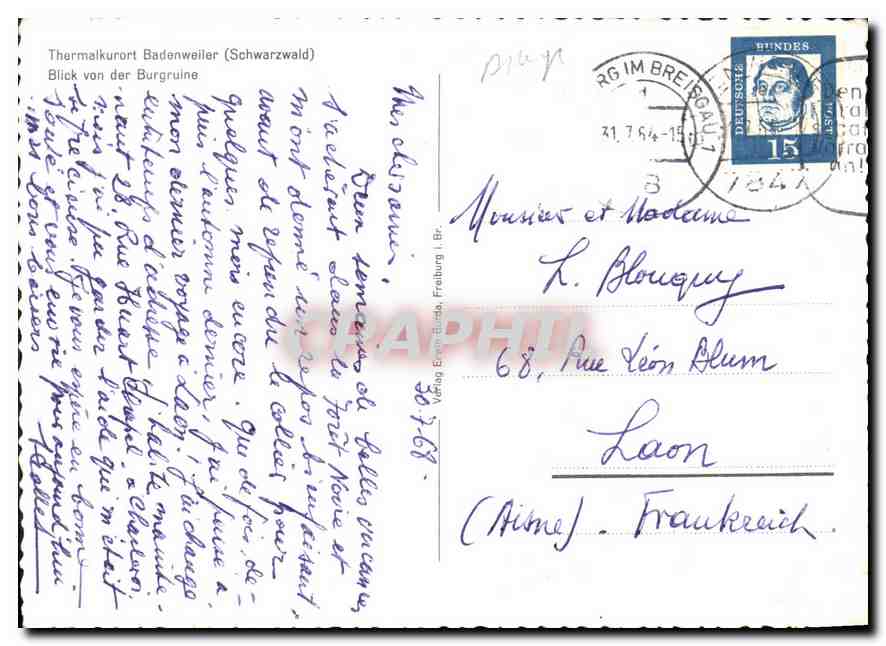 Thermalkurort Badenweiler (Schwarzwald)
Blick von der Burgruine
30-7-68.
Mes chéries,
Deux semaines de belles vacances
s'achèvent dans la Forêt Noire et
m'ont donné un repos bienfaisant,
avant de reprendre le collier pour
quelques mois encore. Que de fois, de-
puis l'automne dernier, j'ai pensé à
mon dernier voyage à Laon! J'ai changé
entretemps d'adresse. J'habite mainte-
nant 28, Rue Huart à Charleroi
mais j'ai pu garder l'aide qui m'était
si précieuse. Je vous espère en bonne
santé et vous envoie pour aujourd'hui
mes bons baisers
Verlag Erwin Burda, Freiburg i. Br.
CPAPHIL
RG IM BREISGAU 1
31.7.64-15
B
784
DEUTSCHE BUNDESPOST
15
Monsieur et Madame
L. Blouquy
68, Rue Léon Blum
Laon
(Aisne). Frankreich.